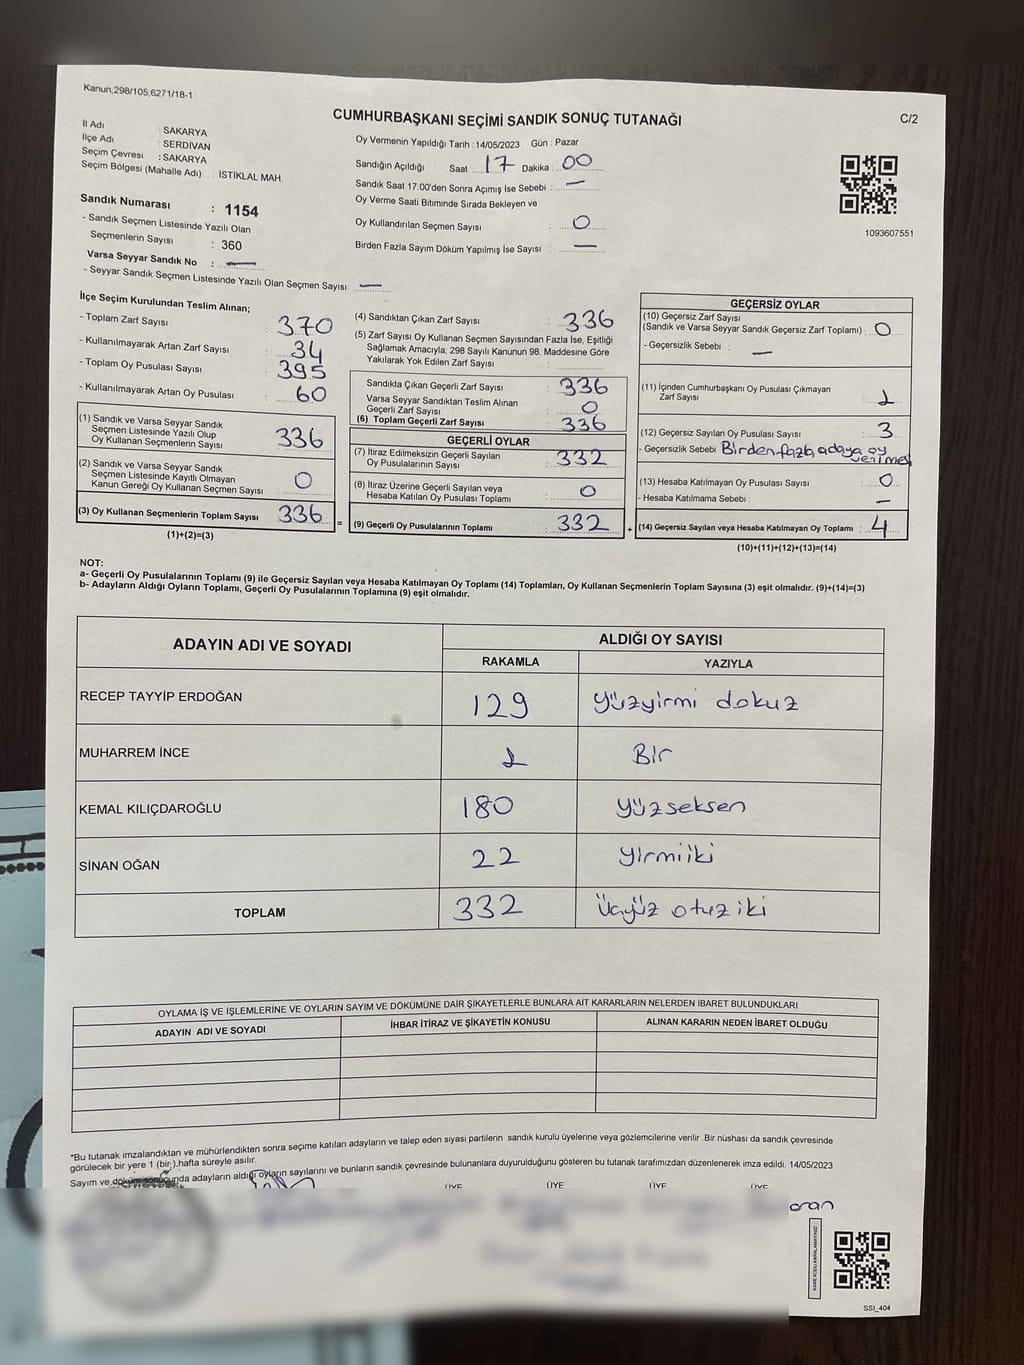 Kanun;298/105,6271/18-1
CUMHURBAŞKANI SEÇİMİ SANDIK SONUÇ TUTANAĞI
C/2
İl Adı : SAKARYA
İlçe Adı : SERDİVAN
Seçim Çevresi : SAKARYA
Seçim Bölgesi (Mahalle Adı) : İSTİKLAL MAH.
Sandık Numarası : 1154
- Sandık Seçmen Listesinde Yazılı Olan
Seçmenlerin Sayısı : 360
Varsa Seyyar Sandık No : —
- Seyyar Sandık Seçmen Listesinde Yazılı Olan Seçmen Sayısı: —
Oy Vermenin Yapıldığı Tarih : 14/05/2023 Gün : Pazar
Sandığın Açıldığı Saat : 17 Dakika : 00
Sandık Saat 17:00'den Sonra Açımış İse Sebebi : —
Oy Verme Saati Bitiminde Sırada Bekleyen ve
Oy Kullandırılan Seçmen Sayısı : 0
Birden Fazla Sayım Döküm Yapılmış İse Sayısı : —
1093607551
İlçe Seçim Kurulundan Teslim Alınan;
- Toplam Zarf Sayısı : 370
- Kullanılmayarak Artan Zarf Sayısı : 34
- Toplam Oy Pusulası Sayısı : 395
- Kullanılmayarak Artan Oy Pusulası : 60
(1) Sandık ve Varsa Seyyar Sandık
Seçmen Listesinde Yazılı Olup
Oy Kullanan Seçmenlerin Sayısı : 336
(2) Sandık ve Varsa Seyyar Sandık
Seçmen Listesinde Kayıtlı Olmayan
Kanun Gereği Oy Kullanan Seçmen Sayısı : 0
(3) Oy Kullanan Seçmenlerin Toplam Sayısı : 336 =
(1)+(2)=(3)
(4) Sandıktan Çıkan Zarf Sayısı : 336
(5) Zarf Sayısı Oy Kullanan Seçmen Sayısından Fazla İse, Eşitliği
Sağlamak Amacıyla, 298 Sayılı Kanunun 98. Maddesine Göre
Yakılarak Yok Edilen Zarf Sayısı :
Sandıkta Çıkan Geçerli Zarf Sayısı : 336
Varsa Seyyar Sandıktan Teslim Alınan
Geçerli Zarf Sayısı : 0
(6) Toplam Geçerli Zarf Sayısı : 336
GEÇERLİ OYLAR
(7) İtiraz Edilmeksizin Geçerli Sayılan
Oy Pusulalarının Sayısı : 332
(8) İtiraz Üzerine Geçerli Sayılan veya
Hesaba Katılan Oy Pusulası Toplamı : 0
(9) Geçerli Oy Pusulalarının Toplamı : 332 +
GEÇERSİZ OYLAR
(10) Geçersiz Zarf Sayısı
(Sandık ve Varsa Seyyar Sandık Geçersiz Zarf Toplamı) : 0
- Geçersizlik Sebebi : —
(11) İçinden Cumhurbaşkanı Oy Pusulası Çıkmayan
Zarf Sayısı : 1
(12) Geçersiz Sayılan Oy Pusulası Sayısı : 3
- Geçersizlik Sebebi Birden fazla adaya oy
verilmesi
(13) Hesaba Katılmayan Oy Pusulası Sayısı : 0
- Hesaba Katılmama Sebebi : —
(14) Geçersiz Sayılan veya Hesaba Katılmayan Oy Toplamı : 4
(10)+(11)+(12)+(13)=(14)
NOT:
a- Geçerli Oy Pusulalarının Toplamı (9) ile Geçersiz Sayılan veya Hesaba Katılmayan Oy Toplamı (14) Toplamları, Oy Kullanan Seçmenlerin Toplam Sayısına (3) eşit olmalıdır. (9)+(14)=(3)
b- Adayların Aldığı Oyların Toplamı, Geçerli Oy Pusulalarının Toplamına (9) eşit olmalıdır.
ADAYIN ADI VE SOYADI ALDIĞI OY SAYISI
RAKAMLA YAZIYLA
RECEP TAYYİP ERDOĞAN 129 Yüzyirmi dokuz
MUHARREM İNCE 1 Bir
KEMAL KILIÇDAROĞLU 180 Yüzseksen
SİNAN OĞAN 22 Yirmiiki
TOPLAM 332 Üçyüz otuz iki
OYLAMA İŞ VE İŞLEMLERİNE VE OYLARIN SAYIM VE DÖKÜMÜNE DAİR ŞİKAYETLERLE BUNLARA AİT KARARLARIN NELERDEN İBARET BULUNDUKLARI
ADAYIN ADI VE SOYADI İHBAR İTİRAZ VE ŞİKAYETİN KONUSU ALINAN KARARIN NEDEN İBARET OLDUĞU
*Bu tutanak imzalandıktan ve mühürlendikten sonra seçime katılan adayların ve talep eden siyasi partilerin sandık kurulu üyelerine veya gözlemcilerine verilir .Bir nüshası da sandık çevresinde
görülecek bir yere 1 (bir ).hafta süreyle asılır.
Sayım ve döküm sonucunda adayların aldığı oyların sayılarını ve bunların sandık çevresinde bulunanlara duyurulduğunu gösteren bu tutanak tarafımızdan düzenlenerek imza edildi. 14/05/2023
ÜYE ÜYE ÜYE ÜYE
SSI_404